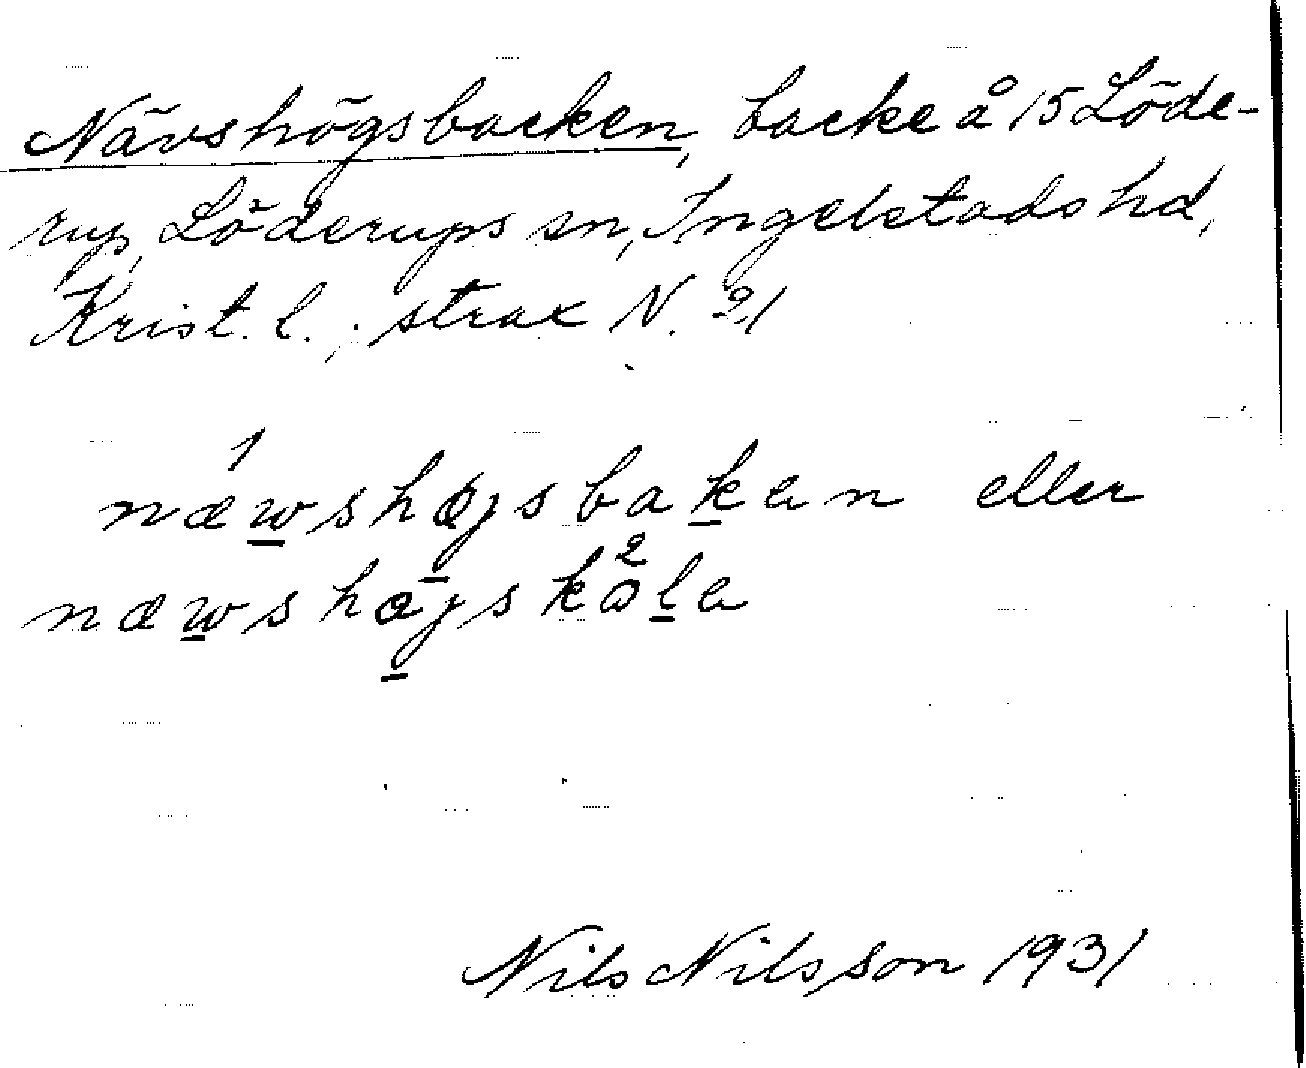 Nävshögsbacken, backe å 15 Löde-
rup, Löderups sn, Ingelstads hd,
Krist. l.; strax N. 21
1
næwshøjsbakan eller
2
næwshøjskåla
Nils Nilsson 1931